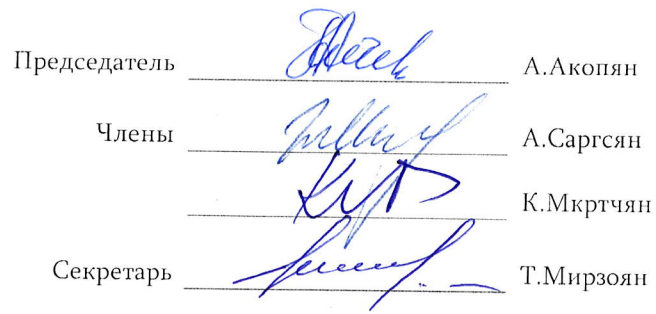 Председатель А.Акопян
Члены А.Саргсян
К.Мкртчян
Секретарь Т.Мирзоян